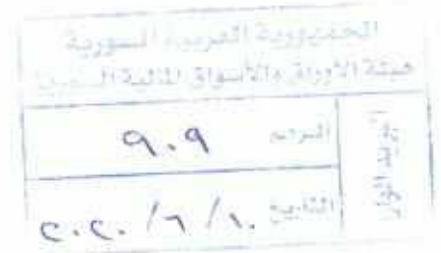 الجمهورية العربية السورية
هيئة الأوراق والأسواق المالية السورية
الرقم ٩٠٩
التاريخ ٢٠٢٠/٦/١٠